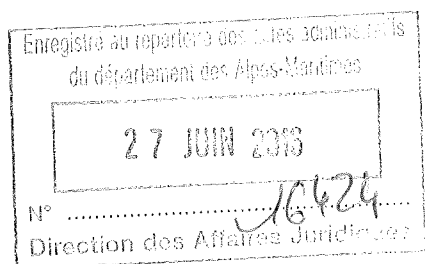 Enregistré au répertoire des actes administratifs
du département des Alpes-Maritimes
27 JUIN 2016
N° 16424
Direction des Affaires Juridiques